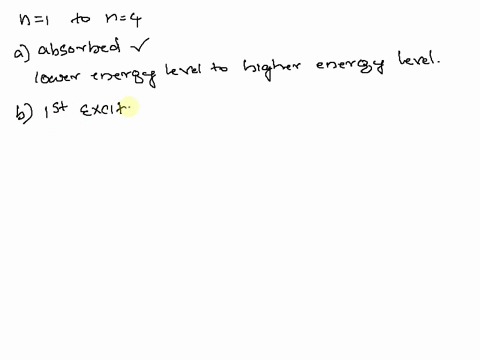 n=1 to n=4
a) absorbed ✓
lower energy level to higher energy level.
b) 1st Excit